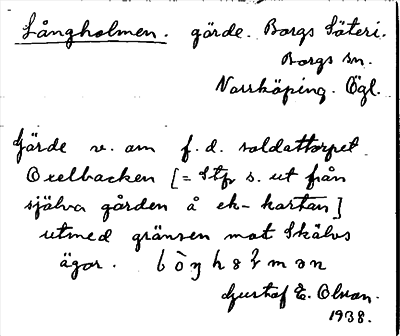 Långholmen. gärde. Borgs Säteri.
Borgs sn.
Norrköping. Ögl.
Gärde v. om f. d. soldattorpet
Oxelbacken [= Stp s. ut från
själva gården å ek-kartan]
utmed gränsen mot Skälvs
ägor.
Gustaf E. Olson.
1938.